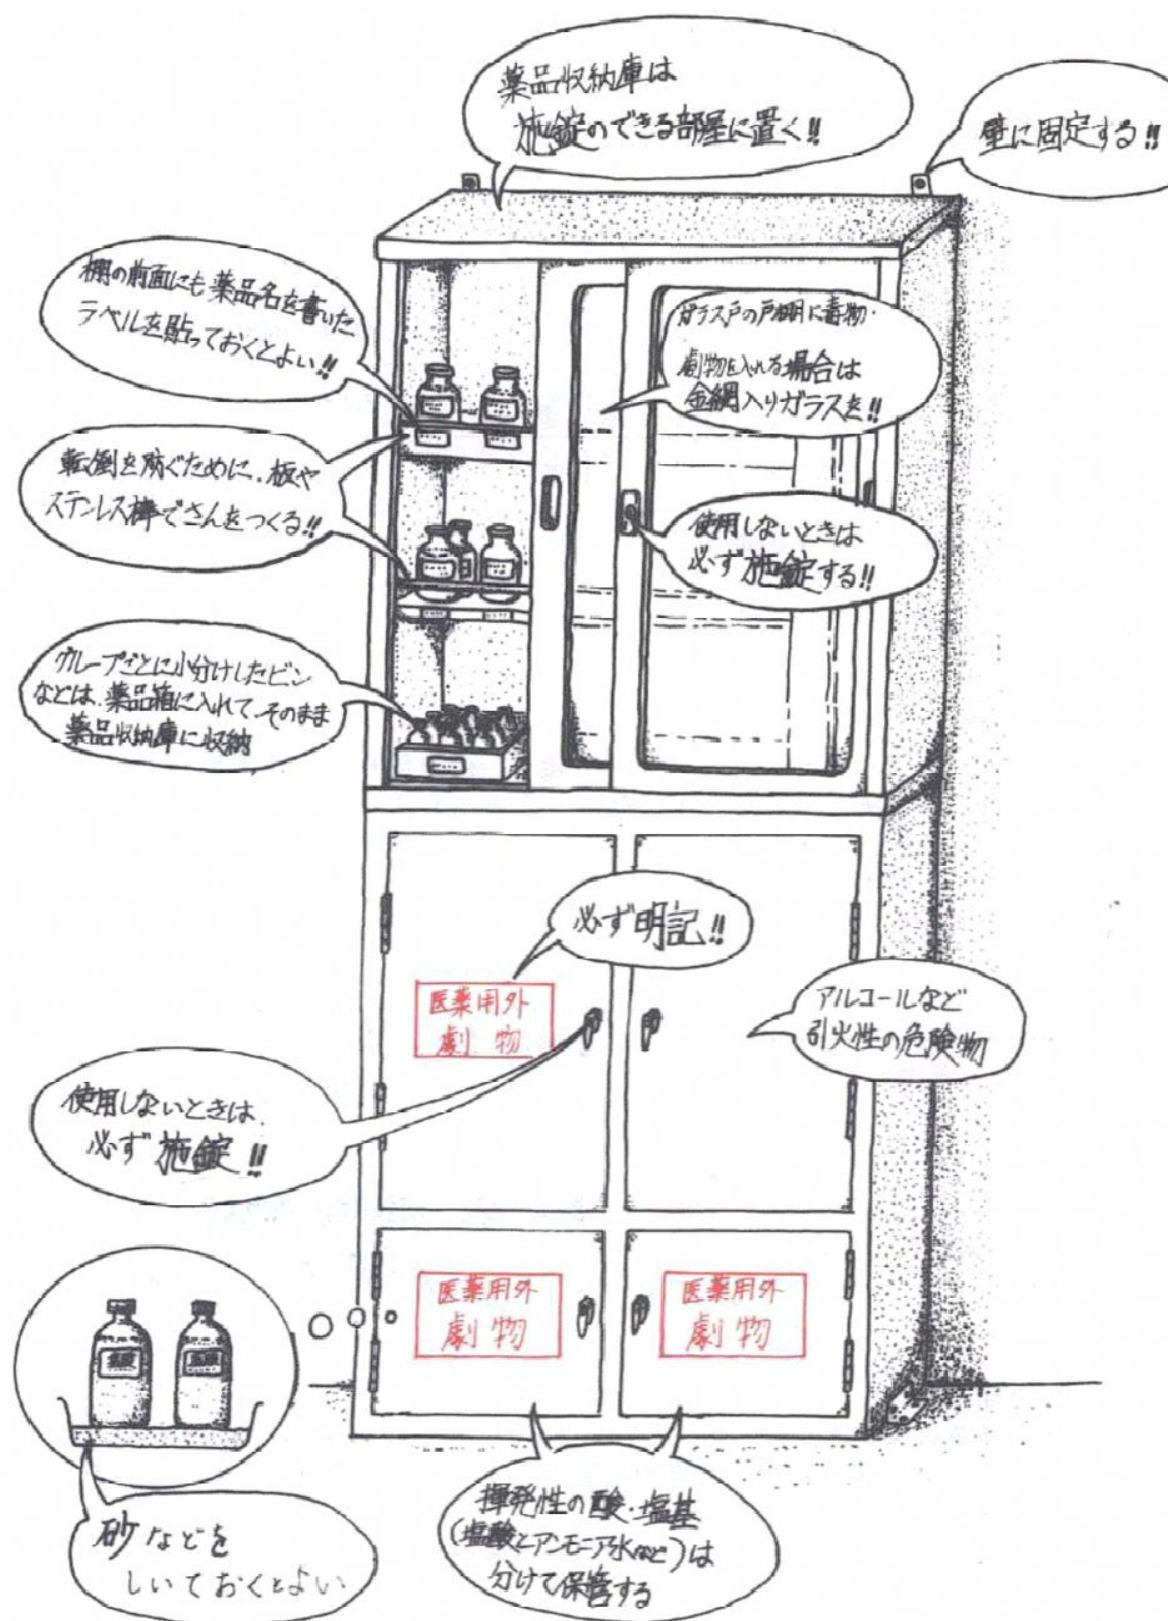 薬品収納庫は
施錠のできる部屋に置く!!
壁に固定する!!
棚の前面にも薬品名を書いた
ラベルを貼っておくとよい!!
ガラス戸の戸棚に毒物・
劇物を入れる場合は
金網入りガラスを!!
転倒を防ぐために、板や
ステンレス棒でさんをつくる!!
使用しないときは
必ず施錠する!!
グループごとに小分けしたビン
などは、薬品箱に入れて、そのまま
薬品収納庫に収納
必ず明記!!
医薬用外
劇物
アルコールなど
引火性の危険物
使用しないときは
必ず施錠!!
医薬用外
劇物
医薬用外
劇物
砂などを
しいておくとよい
揮発性の酸・塩基
(塩酸とアンモニア水など)は
分けて保管する